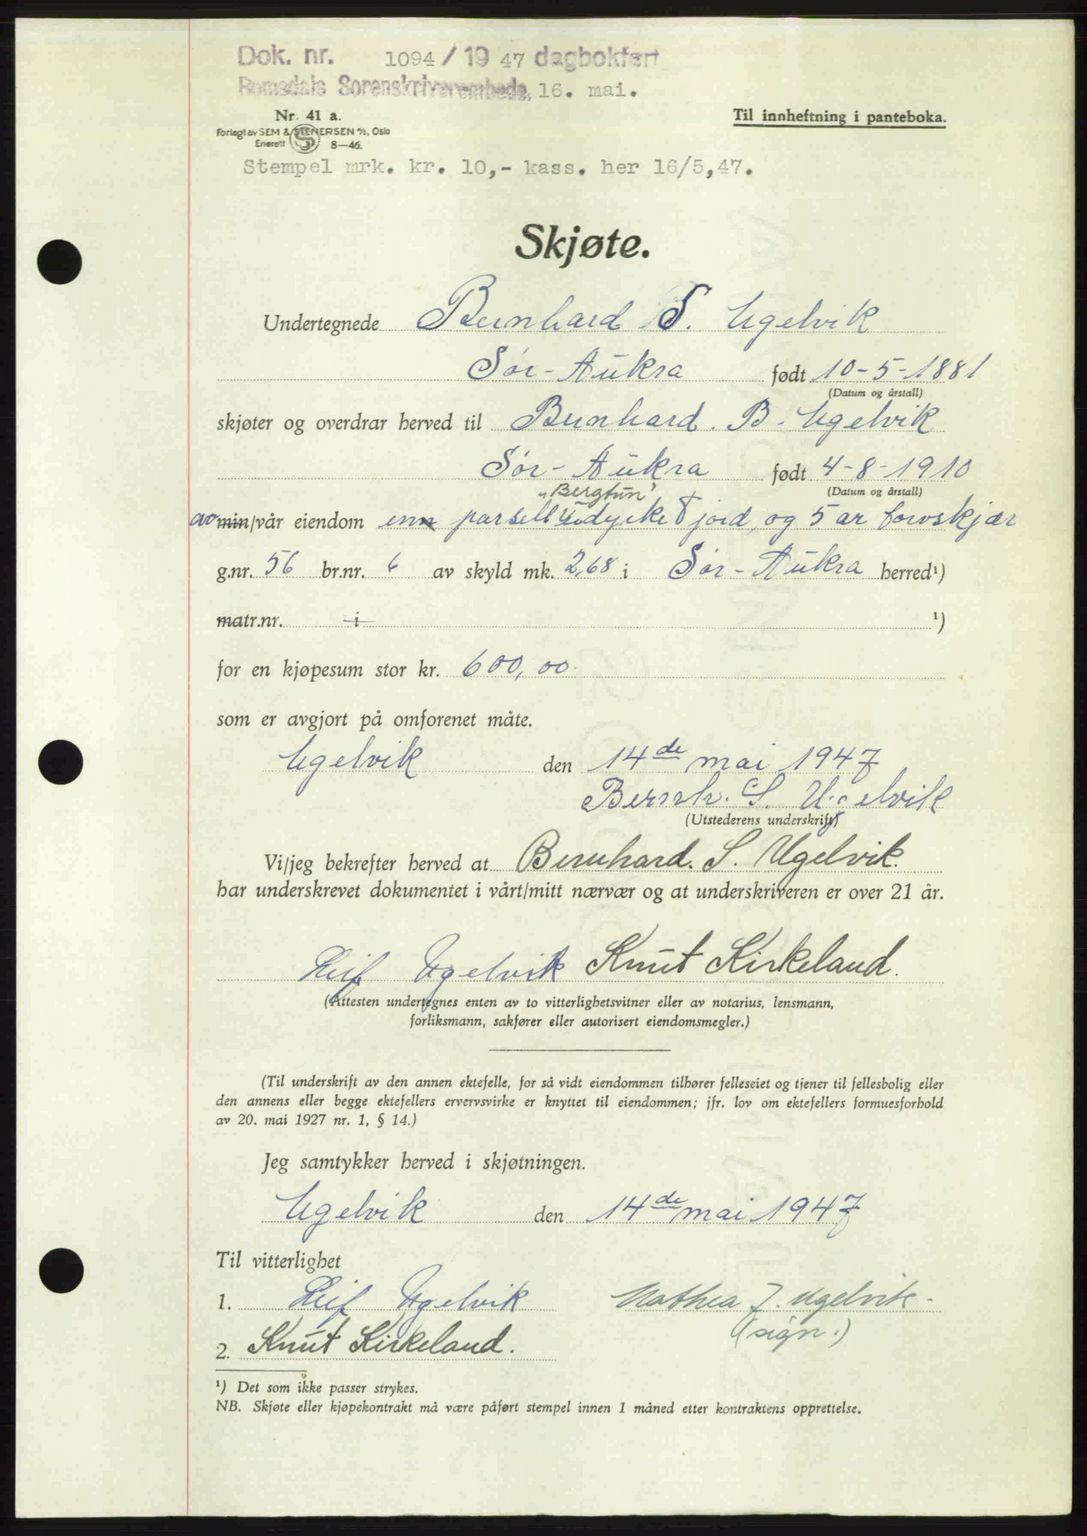 Dok. nr. 1094 / 19 47 dagbokført
Romsdals Sorenskriverembede, 16. mai.
Nr. 41 a.
Til innheftning i panteboka.
Forlagt av SEM & STENERSEN A/S, Oslo
Enerett 8—46.
Stempel mrk. kr. 10,- kass. her 16/5,47.
Skjøte.
Undertegnede Bernhard S. Ugelvik
Sør-Aukra født 10-5-1881
(Datum og årstall)
skjøter og overdrar herved til Bernhard. B. Ugelvik
Sør-Aukra født 4-8-1910
(Datum og årstall)
"Bergtun"
av min/vår eiendom en parsell udyrket jord, og 5 ar
g.nr. 56 br.nr. 6 av skyld mk. 2,68 i Sør-Aukra herred¹)
matr.nr. i ¹)
for en kjøpesum stor kr. 600,00.
som er avgjort på omforenet måte.
Ugelvik den 14de mai 1947
Bernh. S. Ugelvik
(Utstederens underskrift)
Vi/jeg bekrefter herved at Bernhard. S. Ugelvik.
har underskrevet dokumentet i vårt/mitt nærvær og at underskriveren er over 21 år.
Leif Ugelvik Knut Kirkeland.
(Attesten undertegnes enten av to vitterlighetsvitner eller av notarius, lensmann,
forliksmann, sakfører eller autorisert eiendomsmegler.)
(Til underskrift av den annen ektefelle, for så vidt eiendommen tilhører felleseiet og tjener til fellesbolig eller
den annens eller begge ektefellers ervervsvirke er knyttet til eiendommen; jfr. lov om ektefellers formuesforhold
av 20. mai 1927 nr. 1, § 14.)
Jeg samtykker herved i skjøtningen.
Ugelvik den 14de mai 1947
Til vitterlighet
1. Leif Ugelvik Mathea J. Ugelvik.
(sign.)
2. Knut Kirkeland.
¹) Det som ikke passer strykes.
NB. Skjøte eller kjøpekontrakt må være påført stempel innen 1 måned etter kontraktens opprettelse.